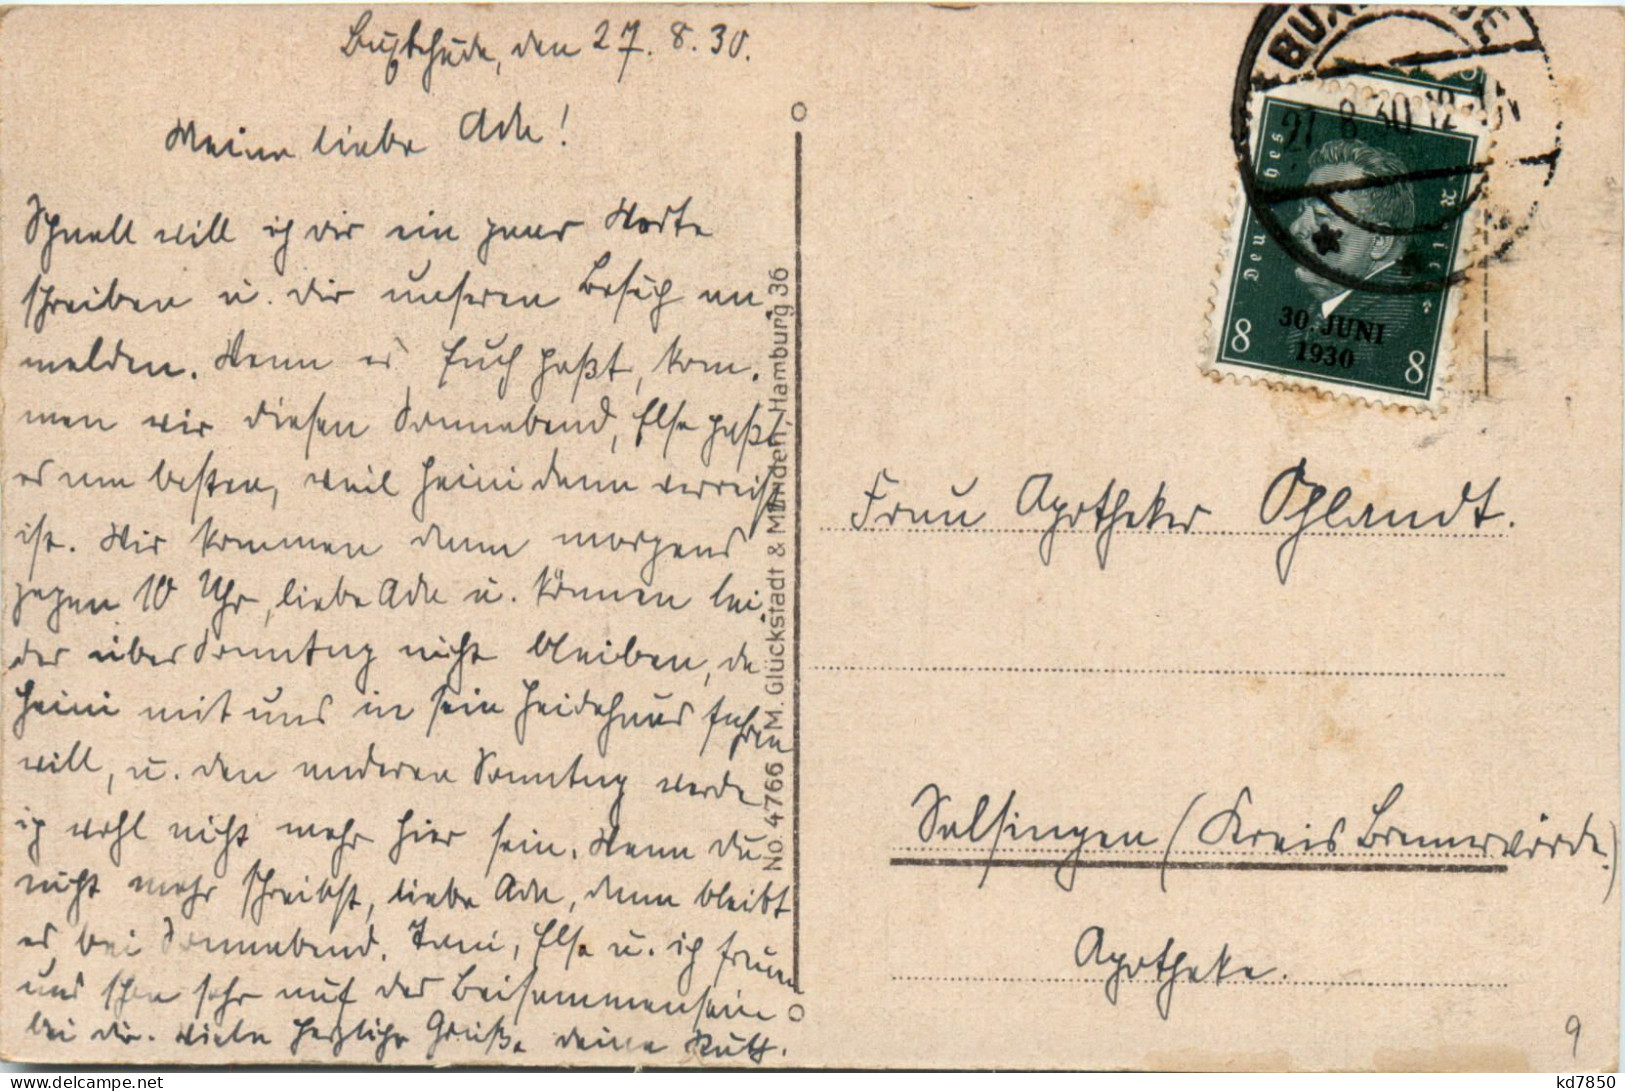 Buxtehude, den 27. 8. 30.
Meine liebe Ade!
Schnell will ich dir ein paar Worte
schreiben u. dir unseren Besuch an
melden. Wenn es Euch paßt, kom-
men wir diesen Sonnabend, Else paßt
es am besten, weil Heini dann verreist
ist. Wir kommen dann morgens
gegen 10 Uhr, liebe Ade u. können lei
der über Sonntag nicht bleiben, da
Heini mit uns in sein Heidehaus fahren
will, u. den anderen Sonntag werde
ich wohl nicht mehr hier sein. Wenn du
nicht mehr schreibst, liebe Ade, dann bleibt
es bei Sonnabend. Toni, Else u. ich freuen
uns schon sehr auf das Beisammensein
bei dir. Viele herzliche Grüße deine Ruth.
No. 4766 M. Glückstadt & Münden, Hamburg 36
BUXTEHUDE
27 8 30 12
Deutsches Reich
30. JUNI
1930
8 8
Frau Apotheker Ohlandt.
Selsingen (Kreis Bremervörde.)
Apotheke.
9
kd7850